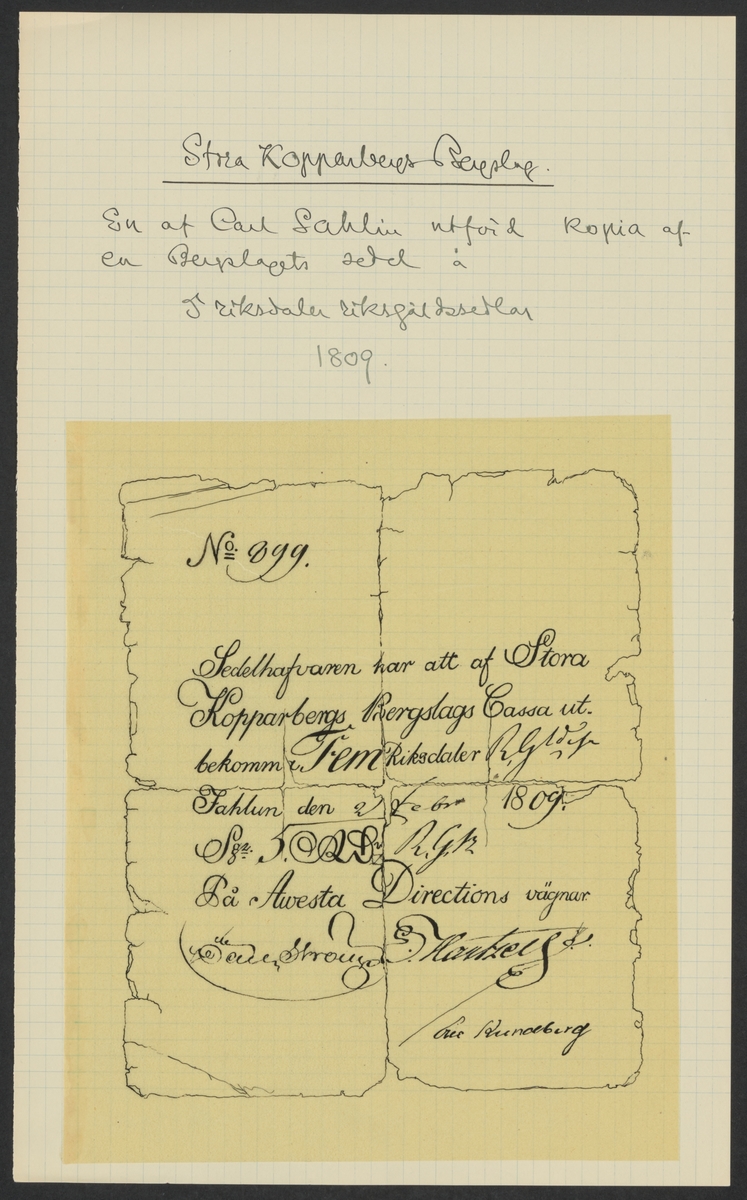 Stora Kopparbergs Bergslag.
En af Carl Sahlin utförd kopia af
en Bergslagets sedel å
5 riksdaler riksgäldssedlar
1809.
No. 899.
Sedelhafvaren har att af Stora
Kopparbergs Bergslags Cassa ut-
bekomma Fem Riksdaler
Fahlun den 2 Febr 1809.
5. R.G.
På Awesta Directions vägnar